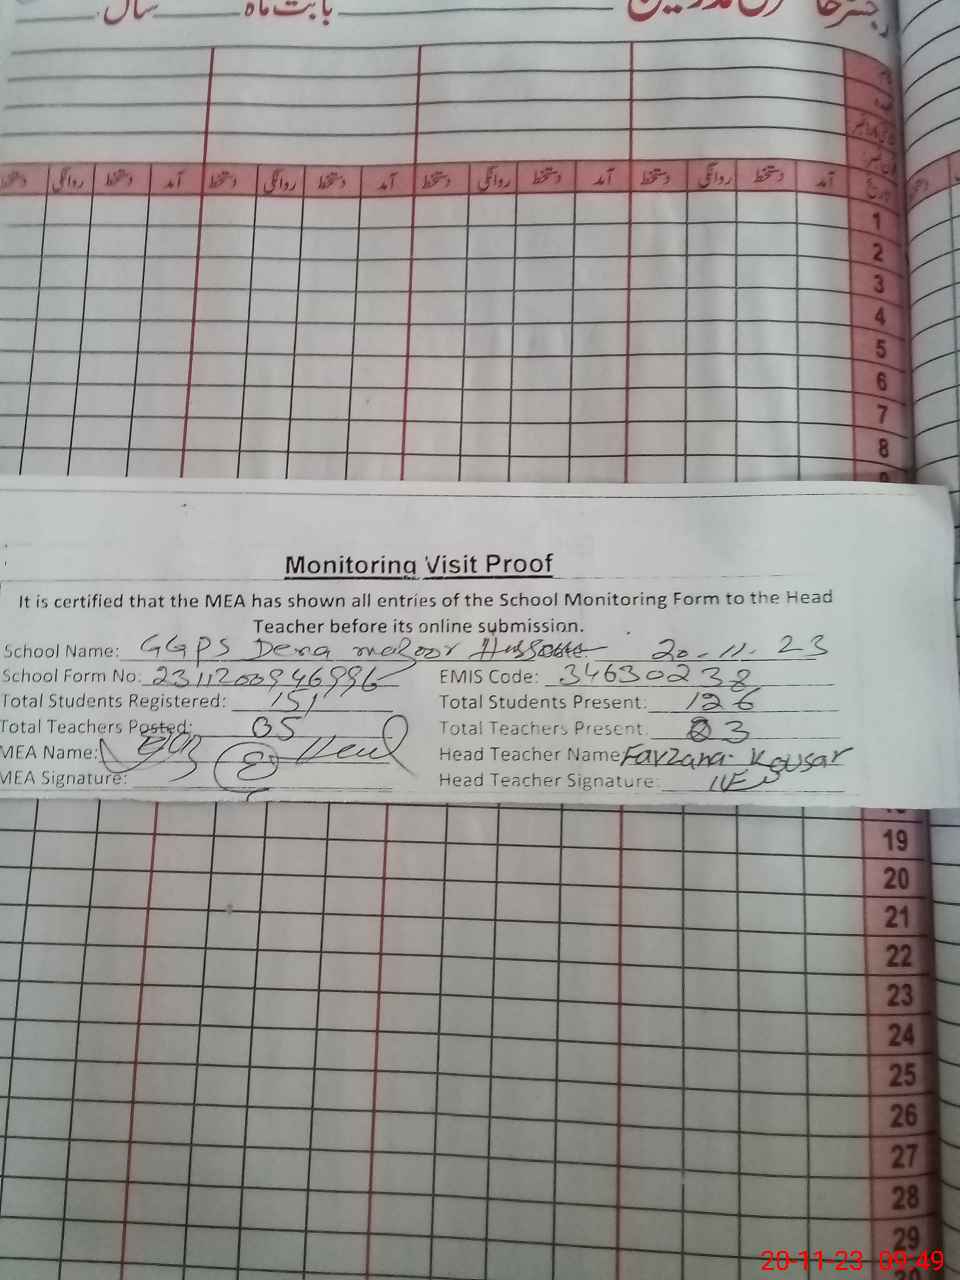 بابت ماہ ____ سال ____
آمد دستخط روانگی دستخط آمد دستخط روانگی دستخط آمد دستخط روانگی دستخط آمد دستخط روانگی دستخط
1
2
3
4
5
6
7
8
Monitoring Visit Proof
It is certified that the MEA has shown all entries of the School Monitoring Form to the Head
Teacher before its online submission.
School Name: GGPS Dera Hussain 20-11-23
School Form No: 231120094699 EMIS Code: 34630238
Total Students Registered: 151 Total Students Present: 126
Total Teachers Posted: 05 Total Teachers Present: 03
MEA Name: Head Teacher Name: Farzana Kousar
MEA Signature: Head Teacher Signature:
19
20
21
22
23
24
25
26
27
28
29
20-11-23 09:49